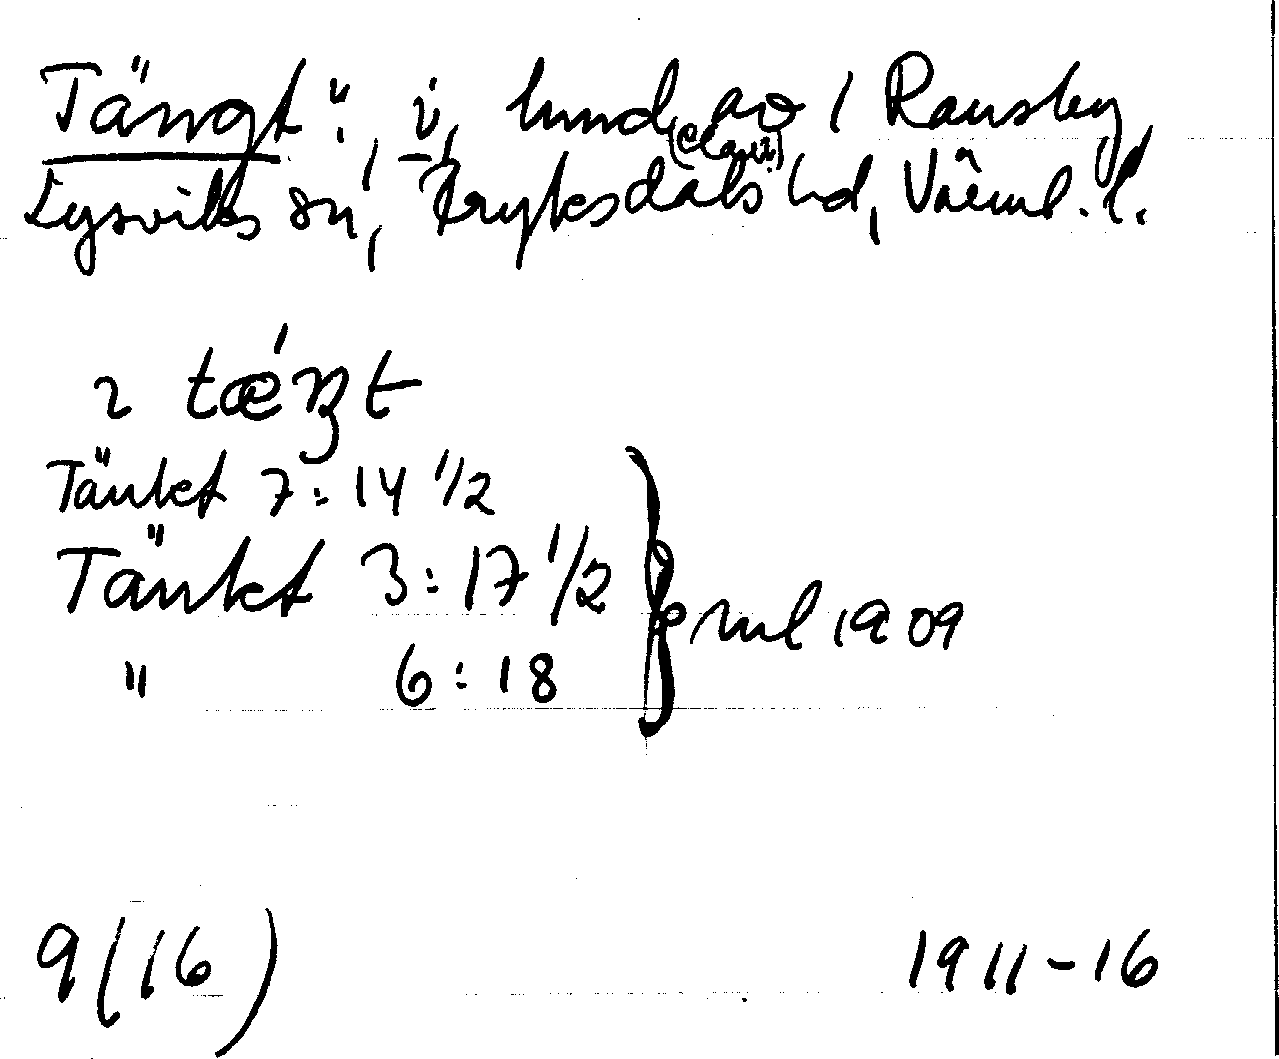 "Tängt", i, hmd av i Ransby,
Lysviks sn, Fryksdals hd, Värml. l.
ı tæ´ŋt
Tänket 7:14 1/2
Tänket 3:17 1/2
" 6:18
prml 1909
9(16)
1911-16